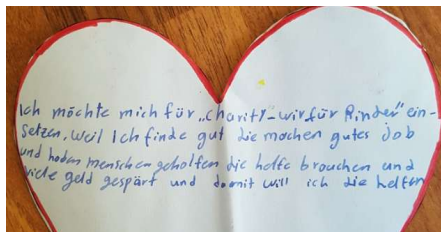 Ich möchte mich für „charity"-wir für Kinder" ein-
setzen, weil Ich finde gut die machen gutes Job
und haben menschen geholfen die helfe brauchen und
viele geld gespärt und damit will ich die helfen